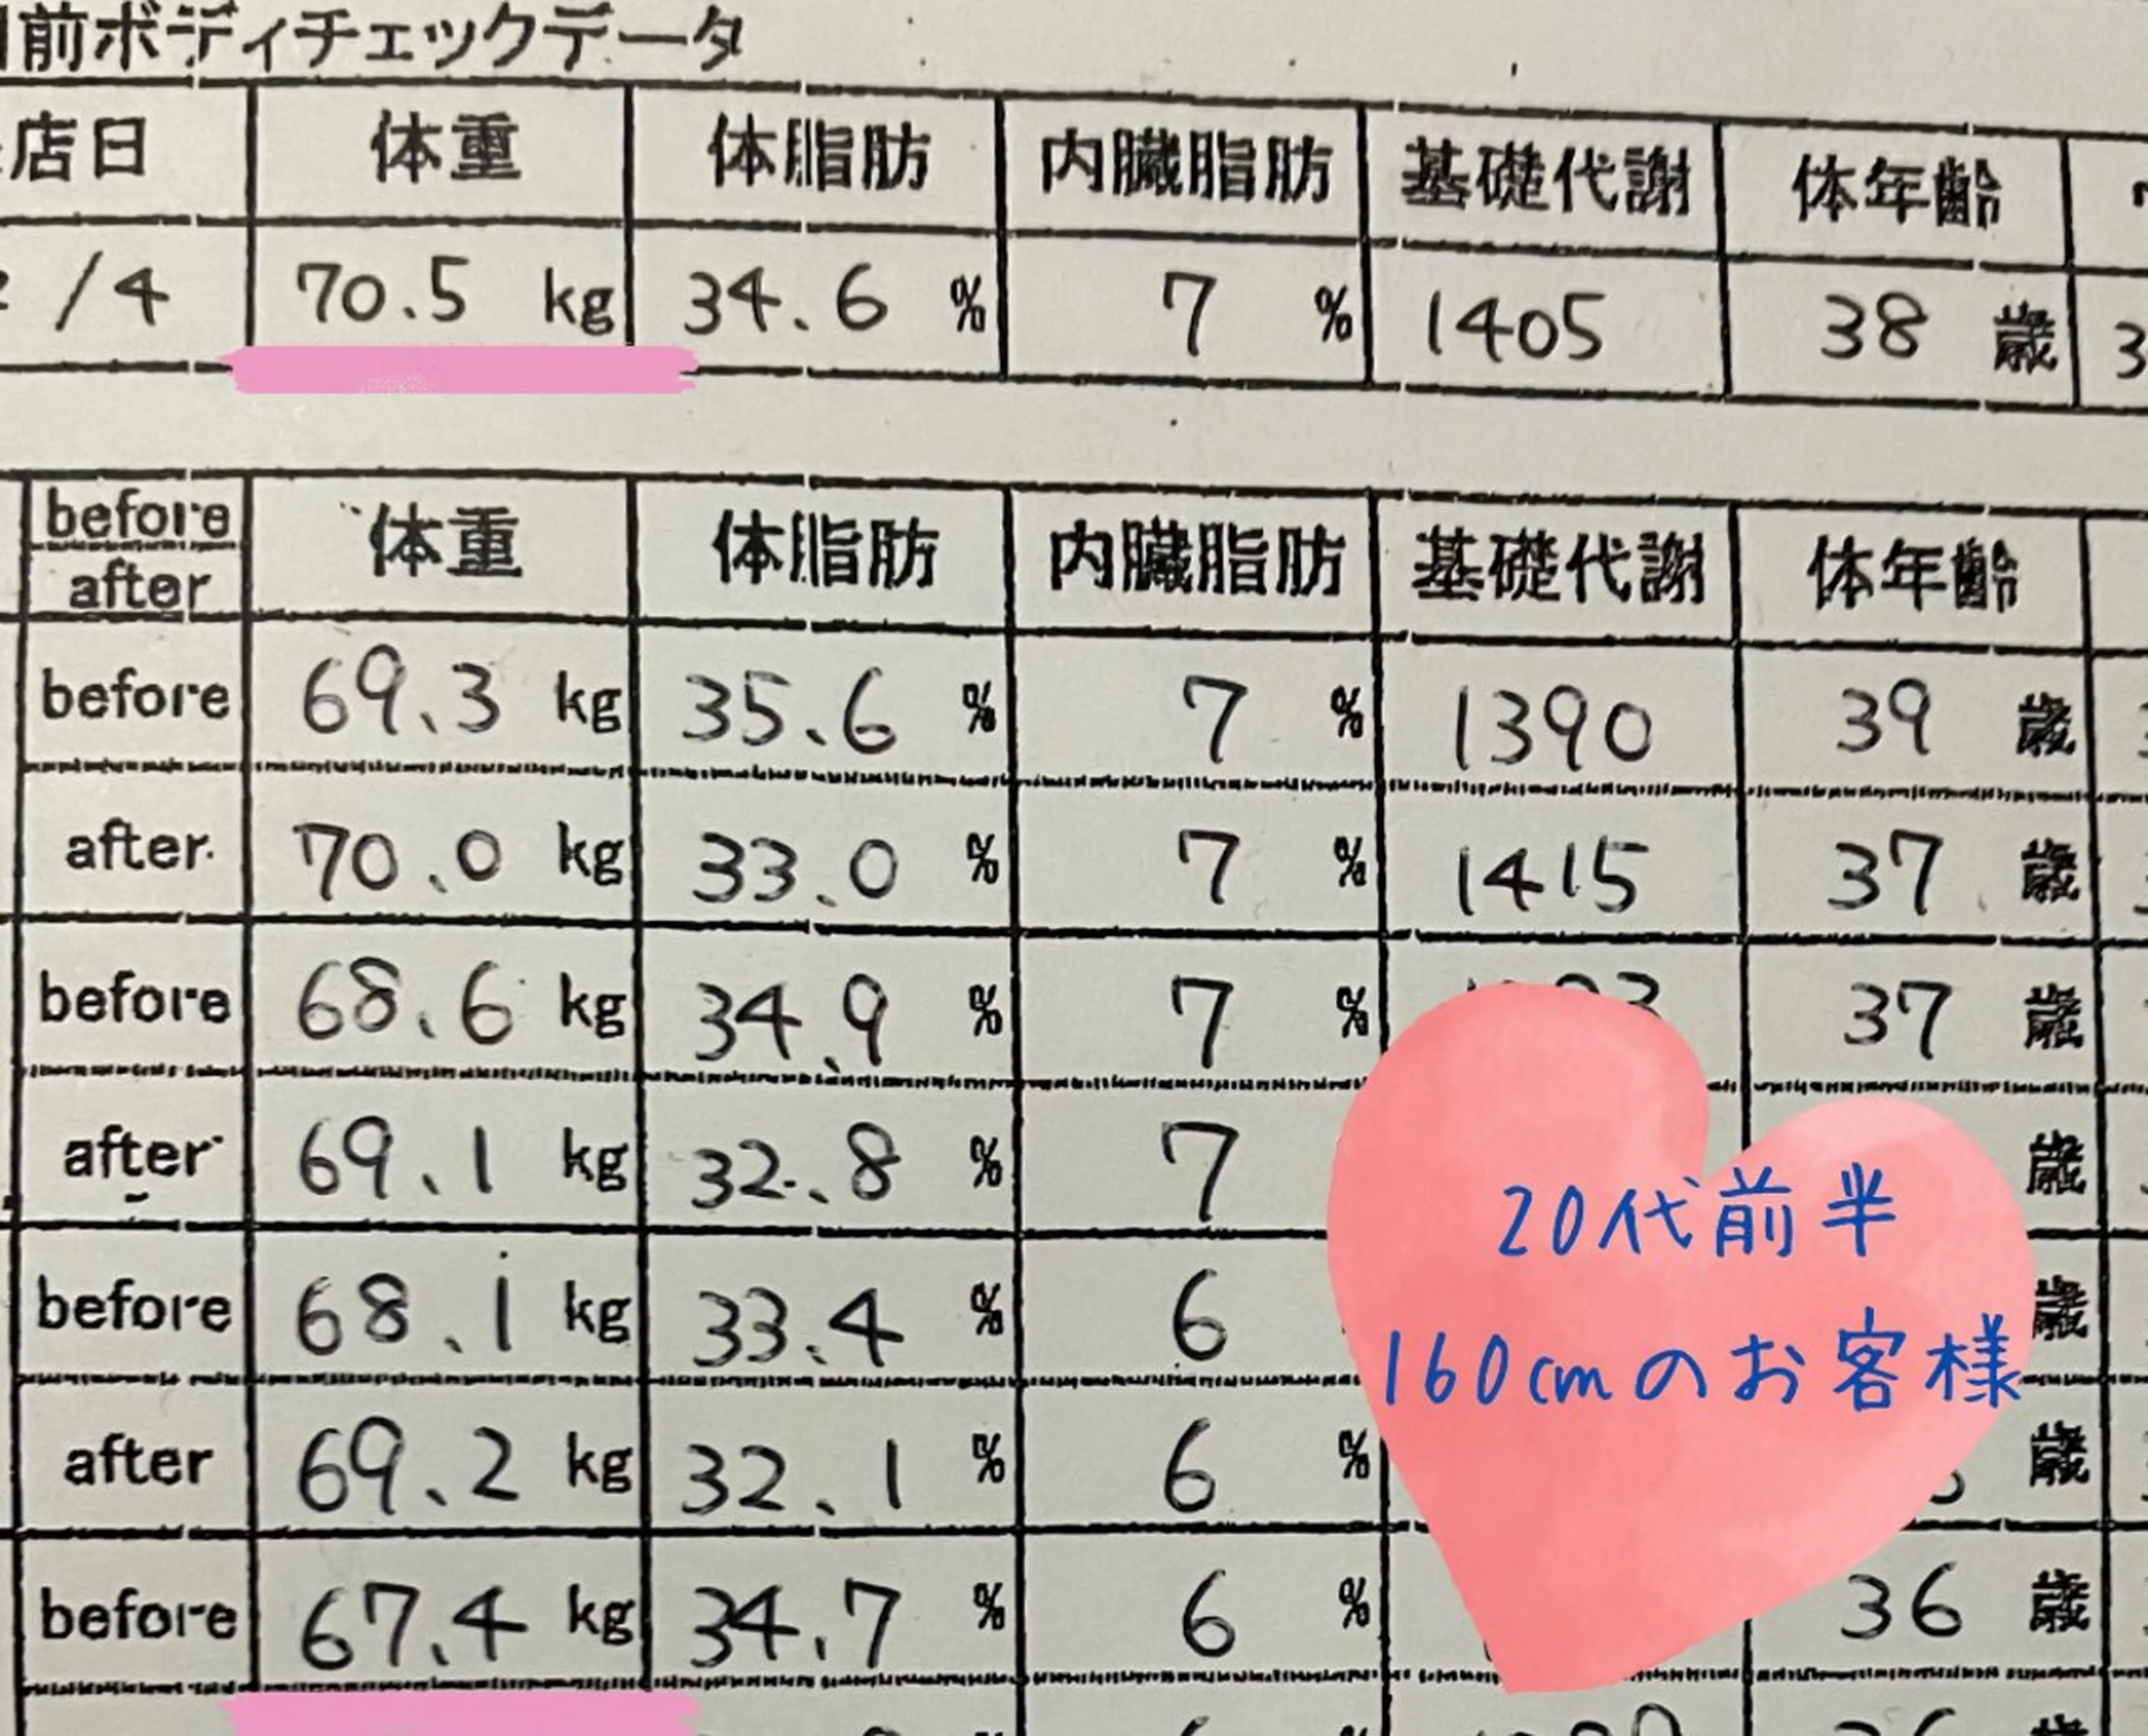 前ボディチェックデータ
店日 体重 体脂肪 内臓脂肪 基礎代謝 体年齢
/4 70.5 kg 34.6 % 7 % 1405 38 歳 3
before after 体重 体脂肪 内臓脂肪 基礎代謝 体年齢
before 69.3 kg 35.6 % 7 % 1390 39 歳
after 70.0 kg 33.0 % 7 % 1415 37 歳
before 68.6 kg 34.9 % 7 % 37 歳
after 69.1 kg 32.8 % 7 歳
before 68.1 kg 33.4 % 6 歳
after 69.2 kg 32.1 % 6 % 歳
before 67.4 kg 34.7 % 6 % 36 歳
20代前半
160cmのお客様